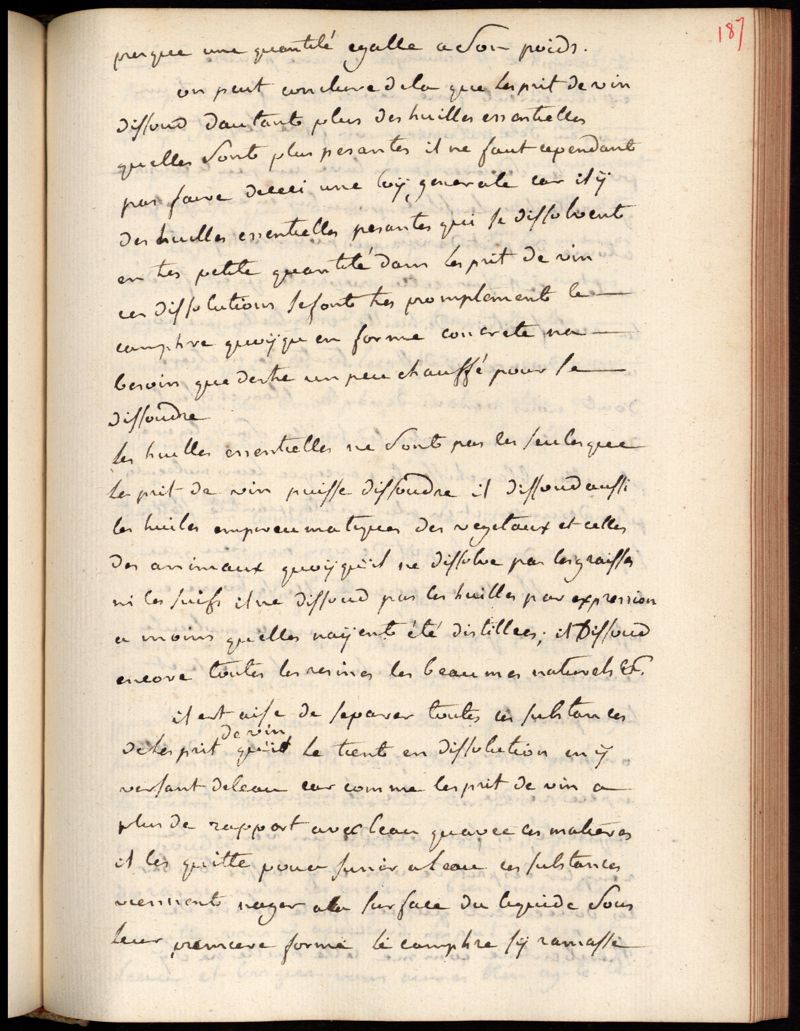 187
presque une quantité egalle a son poids.
on peut conclure dela que lesprit de vin
dissoud dautant plus des huilles essentielles
quelles sont plus pesantes il ne faut cependant
pas faire dececi une loÿ generale car il ÿ
des huilles essentielles pesantes qui se dissolvent
en tres petite quantité dans lesprit de vin
ces dissolutions se font tres promptement le
camphre quoÿque en forme concrete na
besoin que destre un peu chauffé pour se
dissoudre
les huilles essentielles ne sont pas les seules que
lesprit de vin puisse dissoudre il dissoud aussi
les huiles empireumatiques des vegetaux et celles
des animaux quoÿquil ne dissolve pas les graisses
ni les suifs il ne dissoud pas les huilles par expression
a moins quelles naÿent été distillées; il dissoud
encore toutes les resines les beaumes naturels &c.
il est aise de separer toutes ces substances
de lesprit de vin qui le tient en dissolution en ÿ
versant deleau car comme lesprit de vin a
plus de rapport avec leau quavec ces matieres
il les quitte pour sunir a leau ces substances
viennent nager ala surface du liquide sous
leur premiere forme le camphre sÿ ramasse